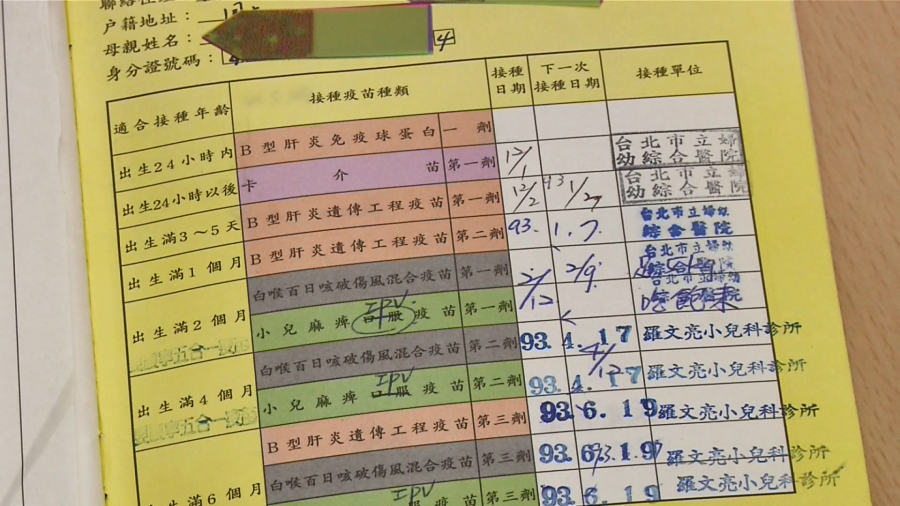 戶籍地址：
母親姓名：
身分證號碼：
4
適合接種年齡 接種疫苗種類 接種日期 下一次接種日期 接種單位
出生24小時內 B型肝炎免疫球蛋白 一劑
台北市立婦幼綜合醫院
出生24小時以後 卡介苗 第一劑 12/1
台北市立婦幼綜合醫院
出生滿3～5天 B型肝炎遺傳工程疫苗 第一劑 12/2 93 1/2
台北市立婦幼綜合醫院
出生滿1個月 B型肝炎遺傳工程疫苗 第二劑 93. 1. 7. 2/9
出生滿2個月 白喉百日咳破傷風混合疫苗 第一劑 2/12
小兒麻痺口服疫苗 第一劑
IPV
出生滿4個月 白喉百日咳破傷風混合疫苗 第二劑 93. 4. 17 羅文亮小兒科診所
小兒麻痺口服疫苗 第二劑 93. 4. 17 羅文亮小兒科診所
IPV
出生滿6個月 B型肝炎遺傳工程疫苗 第三劑 93. 6. 19 羅文亮小兒科診所
白喉百日咳破傷風混合疫苗 第三劑 93. 6. 19 羅文亮小兒科診所
服疫苗 第三劑 93. 6. 19 羅文亮小兒科診所
IPV